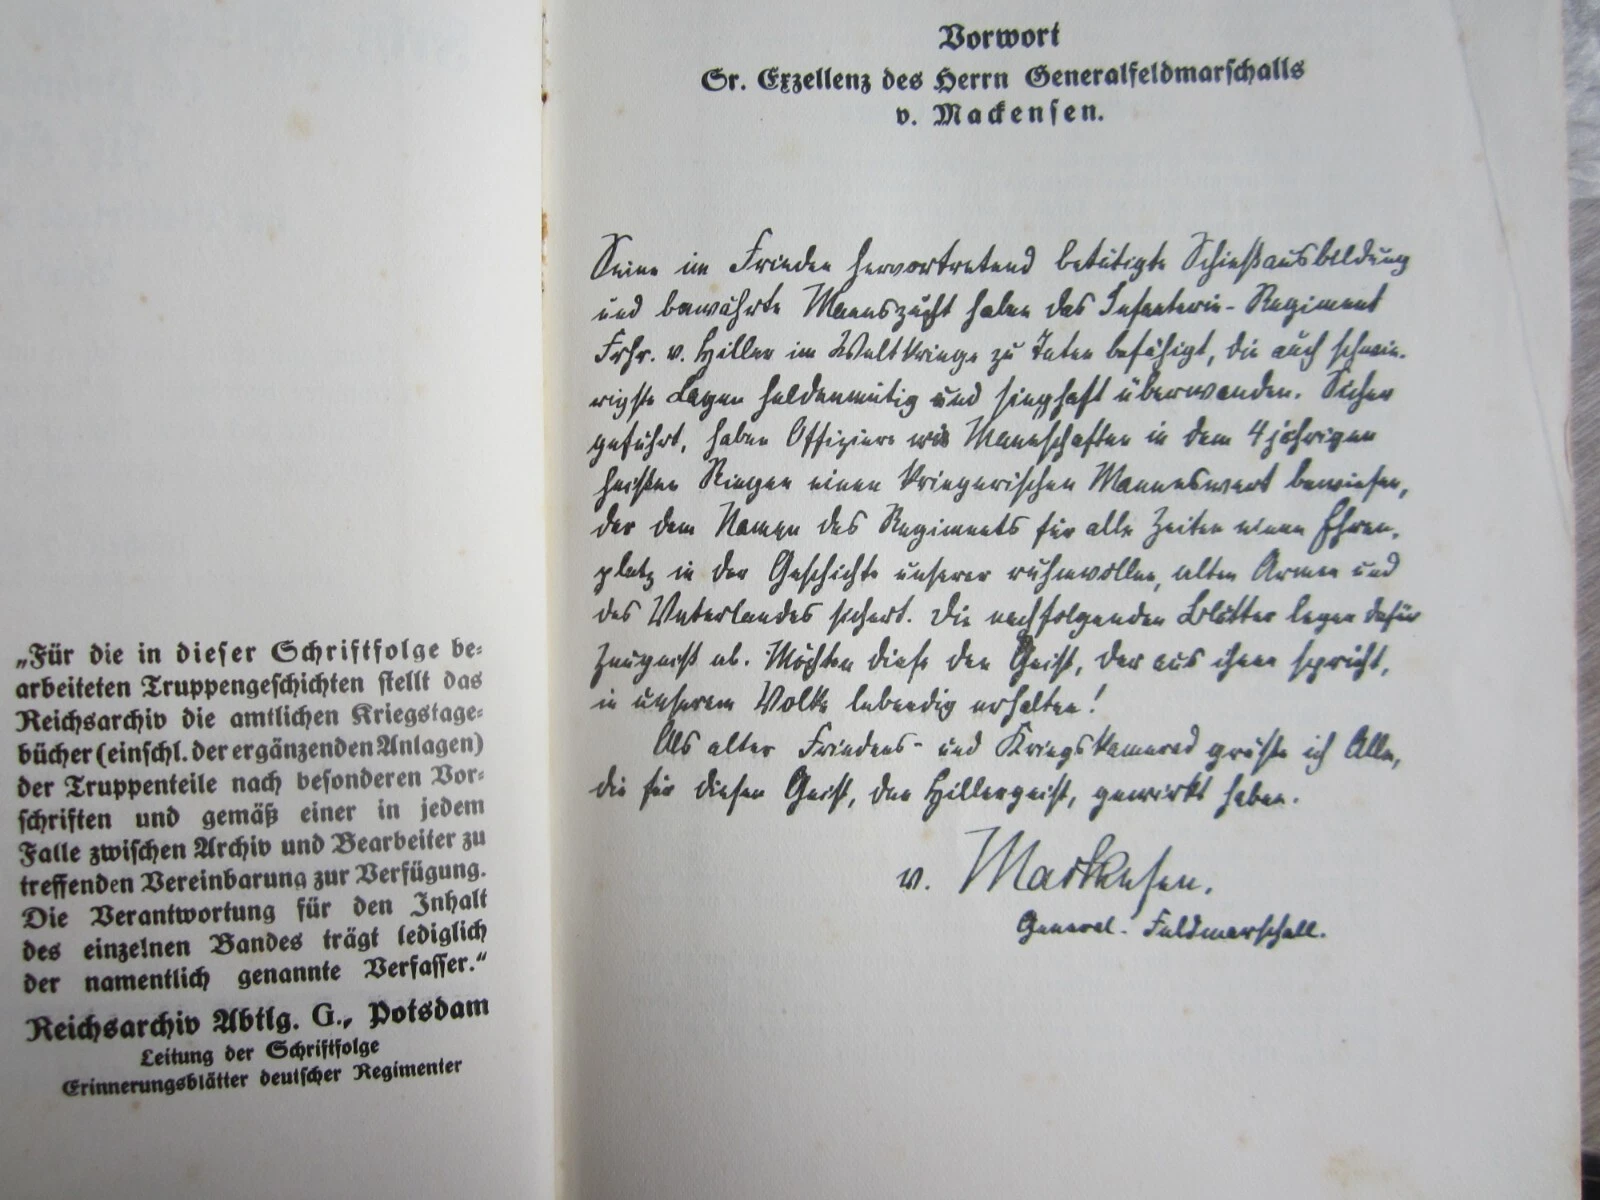 „Für die in dieser Schriftfolge be-
arbeiteten Truppengeschichten stellt das
Reichsarchiv die amtlichen Kriegstage-
bücher (einschl. der ergänzenden Anlagen)
der Truppenteile nach besonderen Vor-
schriften und gemäß einer in jedem
Falle zwischen Archiv und Bearbeiter zu
treffenden Vereinbarung zur Verfügung.
Die Verantwortung für den Inhalt
des einzelnen Bandes trägt lediglich
der namentlich genannte Verfasser.“
Reichsarchiv Abtlg. G., Potsdam
Leitung der Schriftfolge
Erinnerungsblätter deutscher Regimenter
Vorwort
Sr. Exzellenz des Herrn Generalfeldmarschalls
v. Mackensen.
Seine im Frieden hervortretend betätigte Schießausbildung
und bewährte Manneszucht haben das Infanterie-Regiment
Frhr. v. Hiller im Weltkriege zu Taten befähigt, die auch schwie-
rigste Lagen heldenmütig und sieghaft überwanden. Sicher
geführt, haben Offiziere wie Mannschaften in dem 4 jährigen
heißen Ringen einen kriegerischen Manneswert bewiesen,
der dem Namen des Regiments für alle Zeiten einen Ehren-
platz in der Geschichte unserer ruhmvollen, alten Armee und
des Vaterlandes sichert. Die nachfolgenden Blätter legen dafür
Zeugniß ab. Möchten diese den Geist, der aus ihnen spricht,
in unserem Volke lebendig erhalten!
Als alter Friedens- und Kriegskamerad grüße ich Alle,
die für diesen Geist, den Hillergeist, gewirkt haben.
v. Mackensen.
General-Feldmarschall.